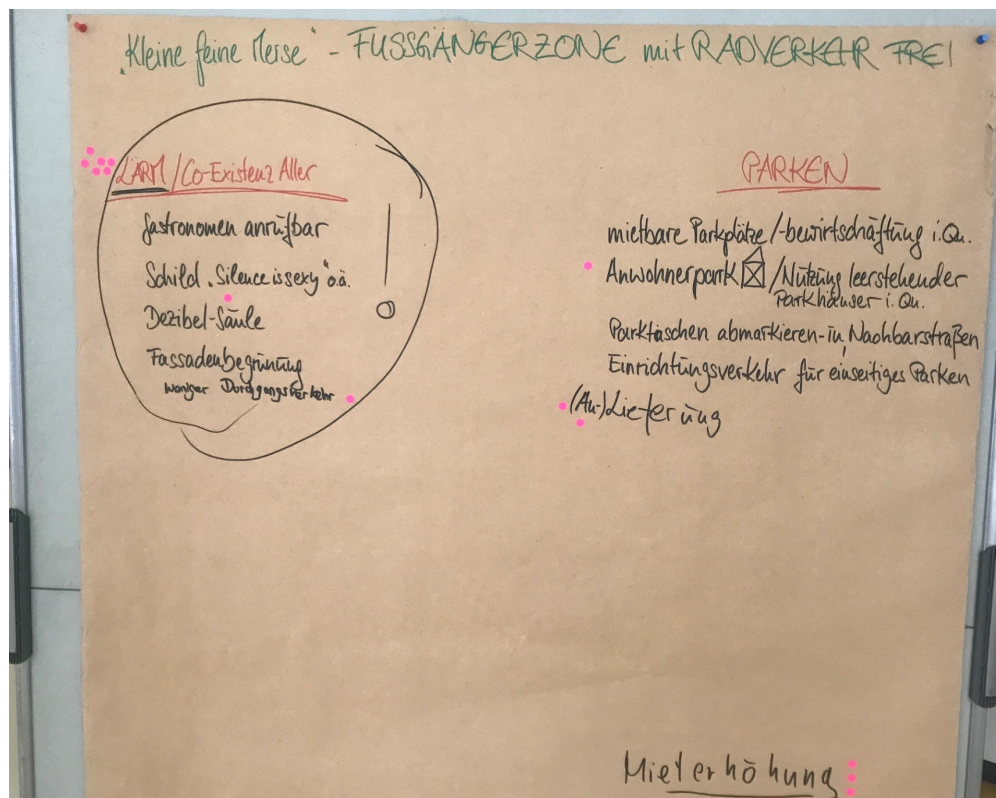 "Kleine feine Messe" - FUSSGÄNGERZONE mit RADVERKEHR FREI
LÄRM / Co-Existenz Aller
Gastronomen anrufbar
Schild "Silence is sexy" o.ä.
Dezibel-Säule
Fassadenbegrünung
weniger Durchgangsverkehr
PARKEN
mietbare Parkplätze /-bewirtschaftung i.Qu.
Anwohnerpark / Nutzung leerstehender
Parkhäuser i.Qu.
Parktaschen abmarkieren - in Nachbarstraßen
Einrichtungsverkehr für einseitiges Parken
(An-)Lieferung
Mieterhöhung